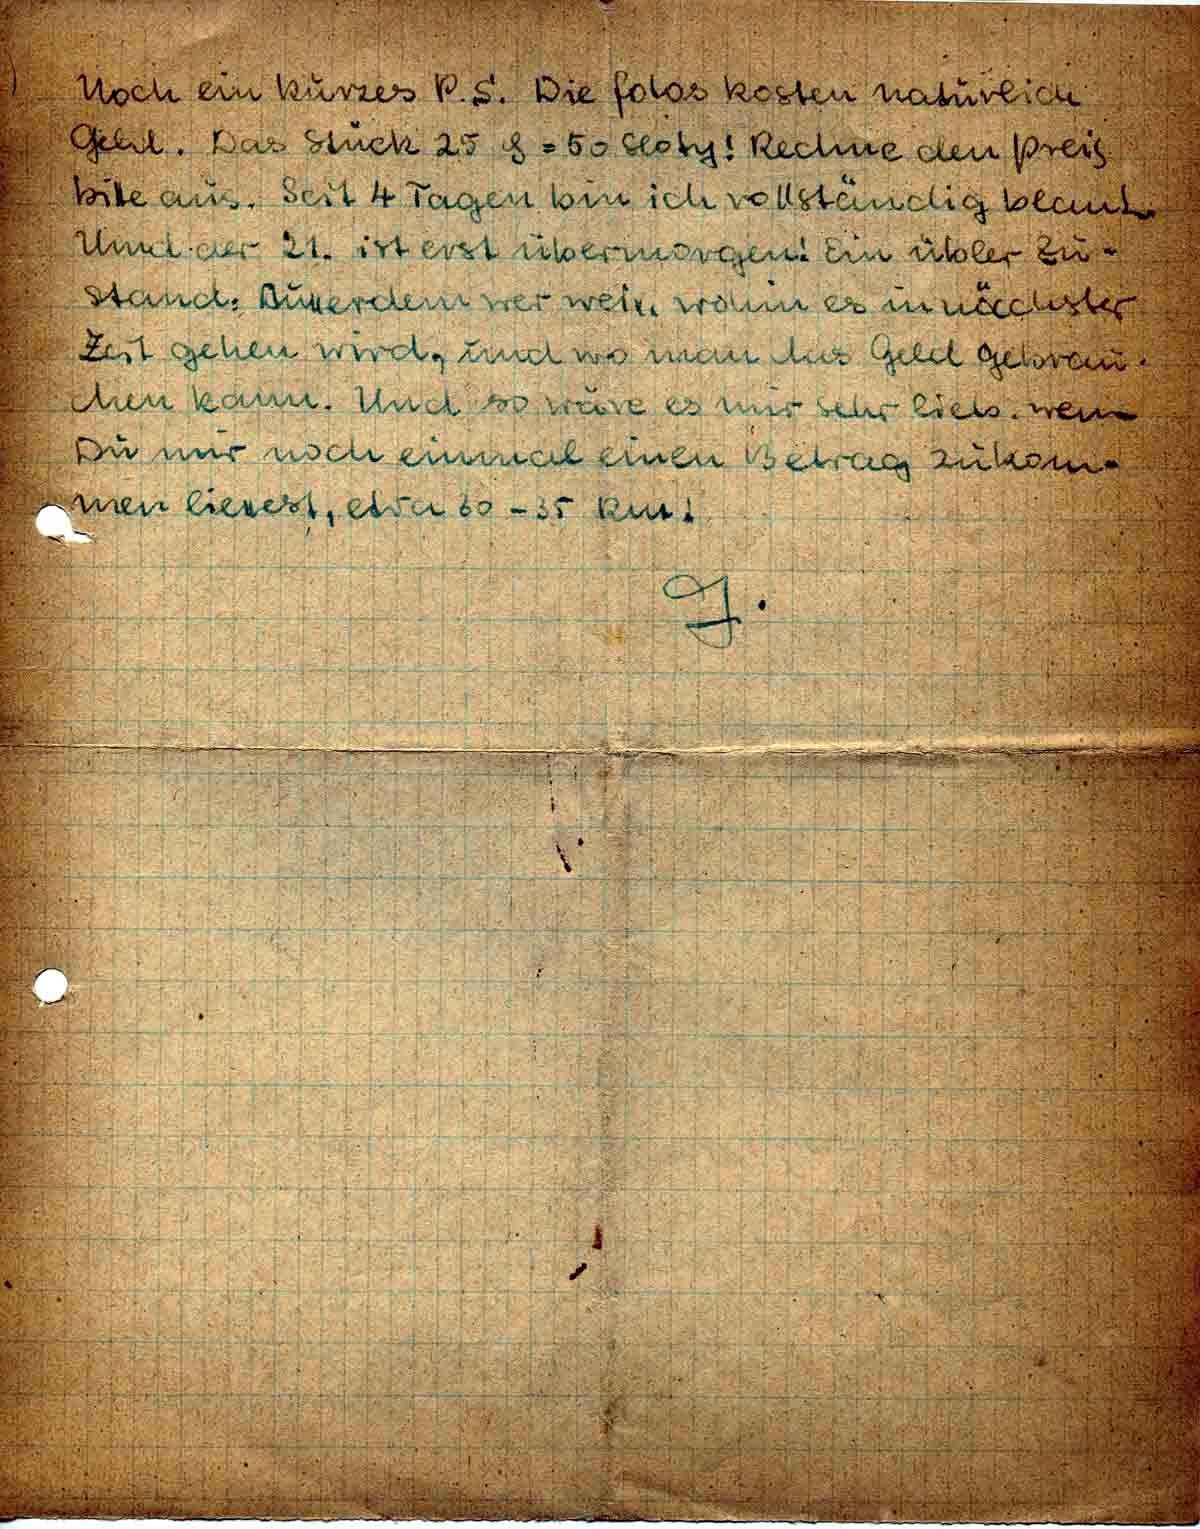 Noch ein kurzes P.S. Die Fotos kosten natürlich
Geld. Das Stück 25 ₰ = 50 Sloty! Rechne den Preis
bitte aus. Seit 4 Tagen bin ich vollständig blank.
Und der 21. ist erst übermorgen! Ein übler Zu-
stand. Auserdem wer weis, wohin es in nächster
Zeit gehen wird, und wo man das Geld gebrau-
chen kann. Und so wäre es mir sehr lieb, wenn
Du mir noch einmal einen Betrag zukom-
men liesest, etwa 30 - 35 Rm!
J.